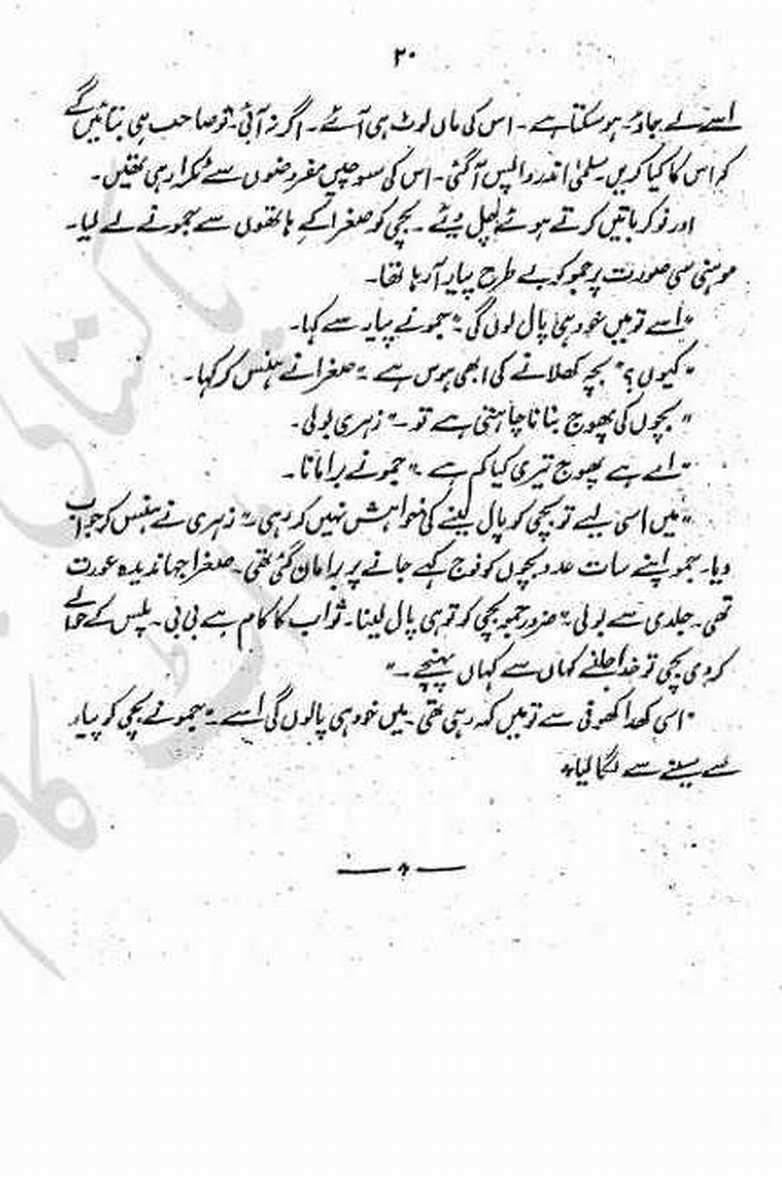 ۲۰
اسے لے جاؤ۔ ہو سکتا ہے۔ اس کی ماں لوٹ ہی آئے۔ اگر نہ آئی۔ تو صاحب ہی بتائیں گے
کہ اس کا کیا کریں۔ سلمیٰ اندر واپس آ گئی۔ اس کی سوچیں مفروضوں سے ٹکرا رہی تھیں۔
اور نوکر باتیں کرتے ہوئے چل پڑے۔ بچی کو صغرا کے ہاتھوں سے جمو نے لے لیا۔
موہنی سی صورت پر جمو کو بے طرح پیار آ رہا تھا۔
"اسے تو میں خود ہی پال لوں گی۔" جمو نے پیار سے کہا۔
"کیوں؟" بچہ کھلانے کی ابھی ہوس ہے۔" صغرا نے ہنس کر کہا۔
"بچوں کی پھوج بنانا چاہتی ہے تو۔" زہری بولی۔
"اے ہے پھوج تیری کیا کم ہے۔" جمو نے برا مانا۔
"میں اسی لیے تو بچی کو پال لینے کی خواہش نہیں کر رہی۔" زہری نے ہنس کر جواب
دیا۔ جمو اپنے سات عدد بچوں کو فوج کہے جانے پر برا مان گئی تھی۔ صغرا جہاندیدہ عورت
تھی۔ جلدی سے بولی۔" ضرور جمو بچی کو تو ہی پال لینا۔ ثواب کا کام ہے بی بی۔ پلس کے حوالے
کر دی بچی تو خدا جانے کہاں سے کہاں پہنچے۔"
"اسی کھدا کھوفی سے تو میں کہہ رہی تھی۔ میں خود ہی پالوں گی اسے۔" جمو نے بچی کو پیار
سے سینے سے لگا لیا۔
پاکستانی
ڈاٹ کام